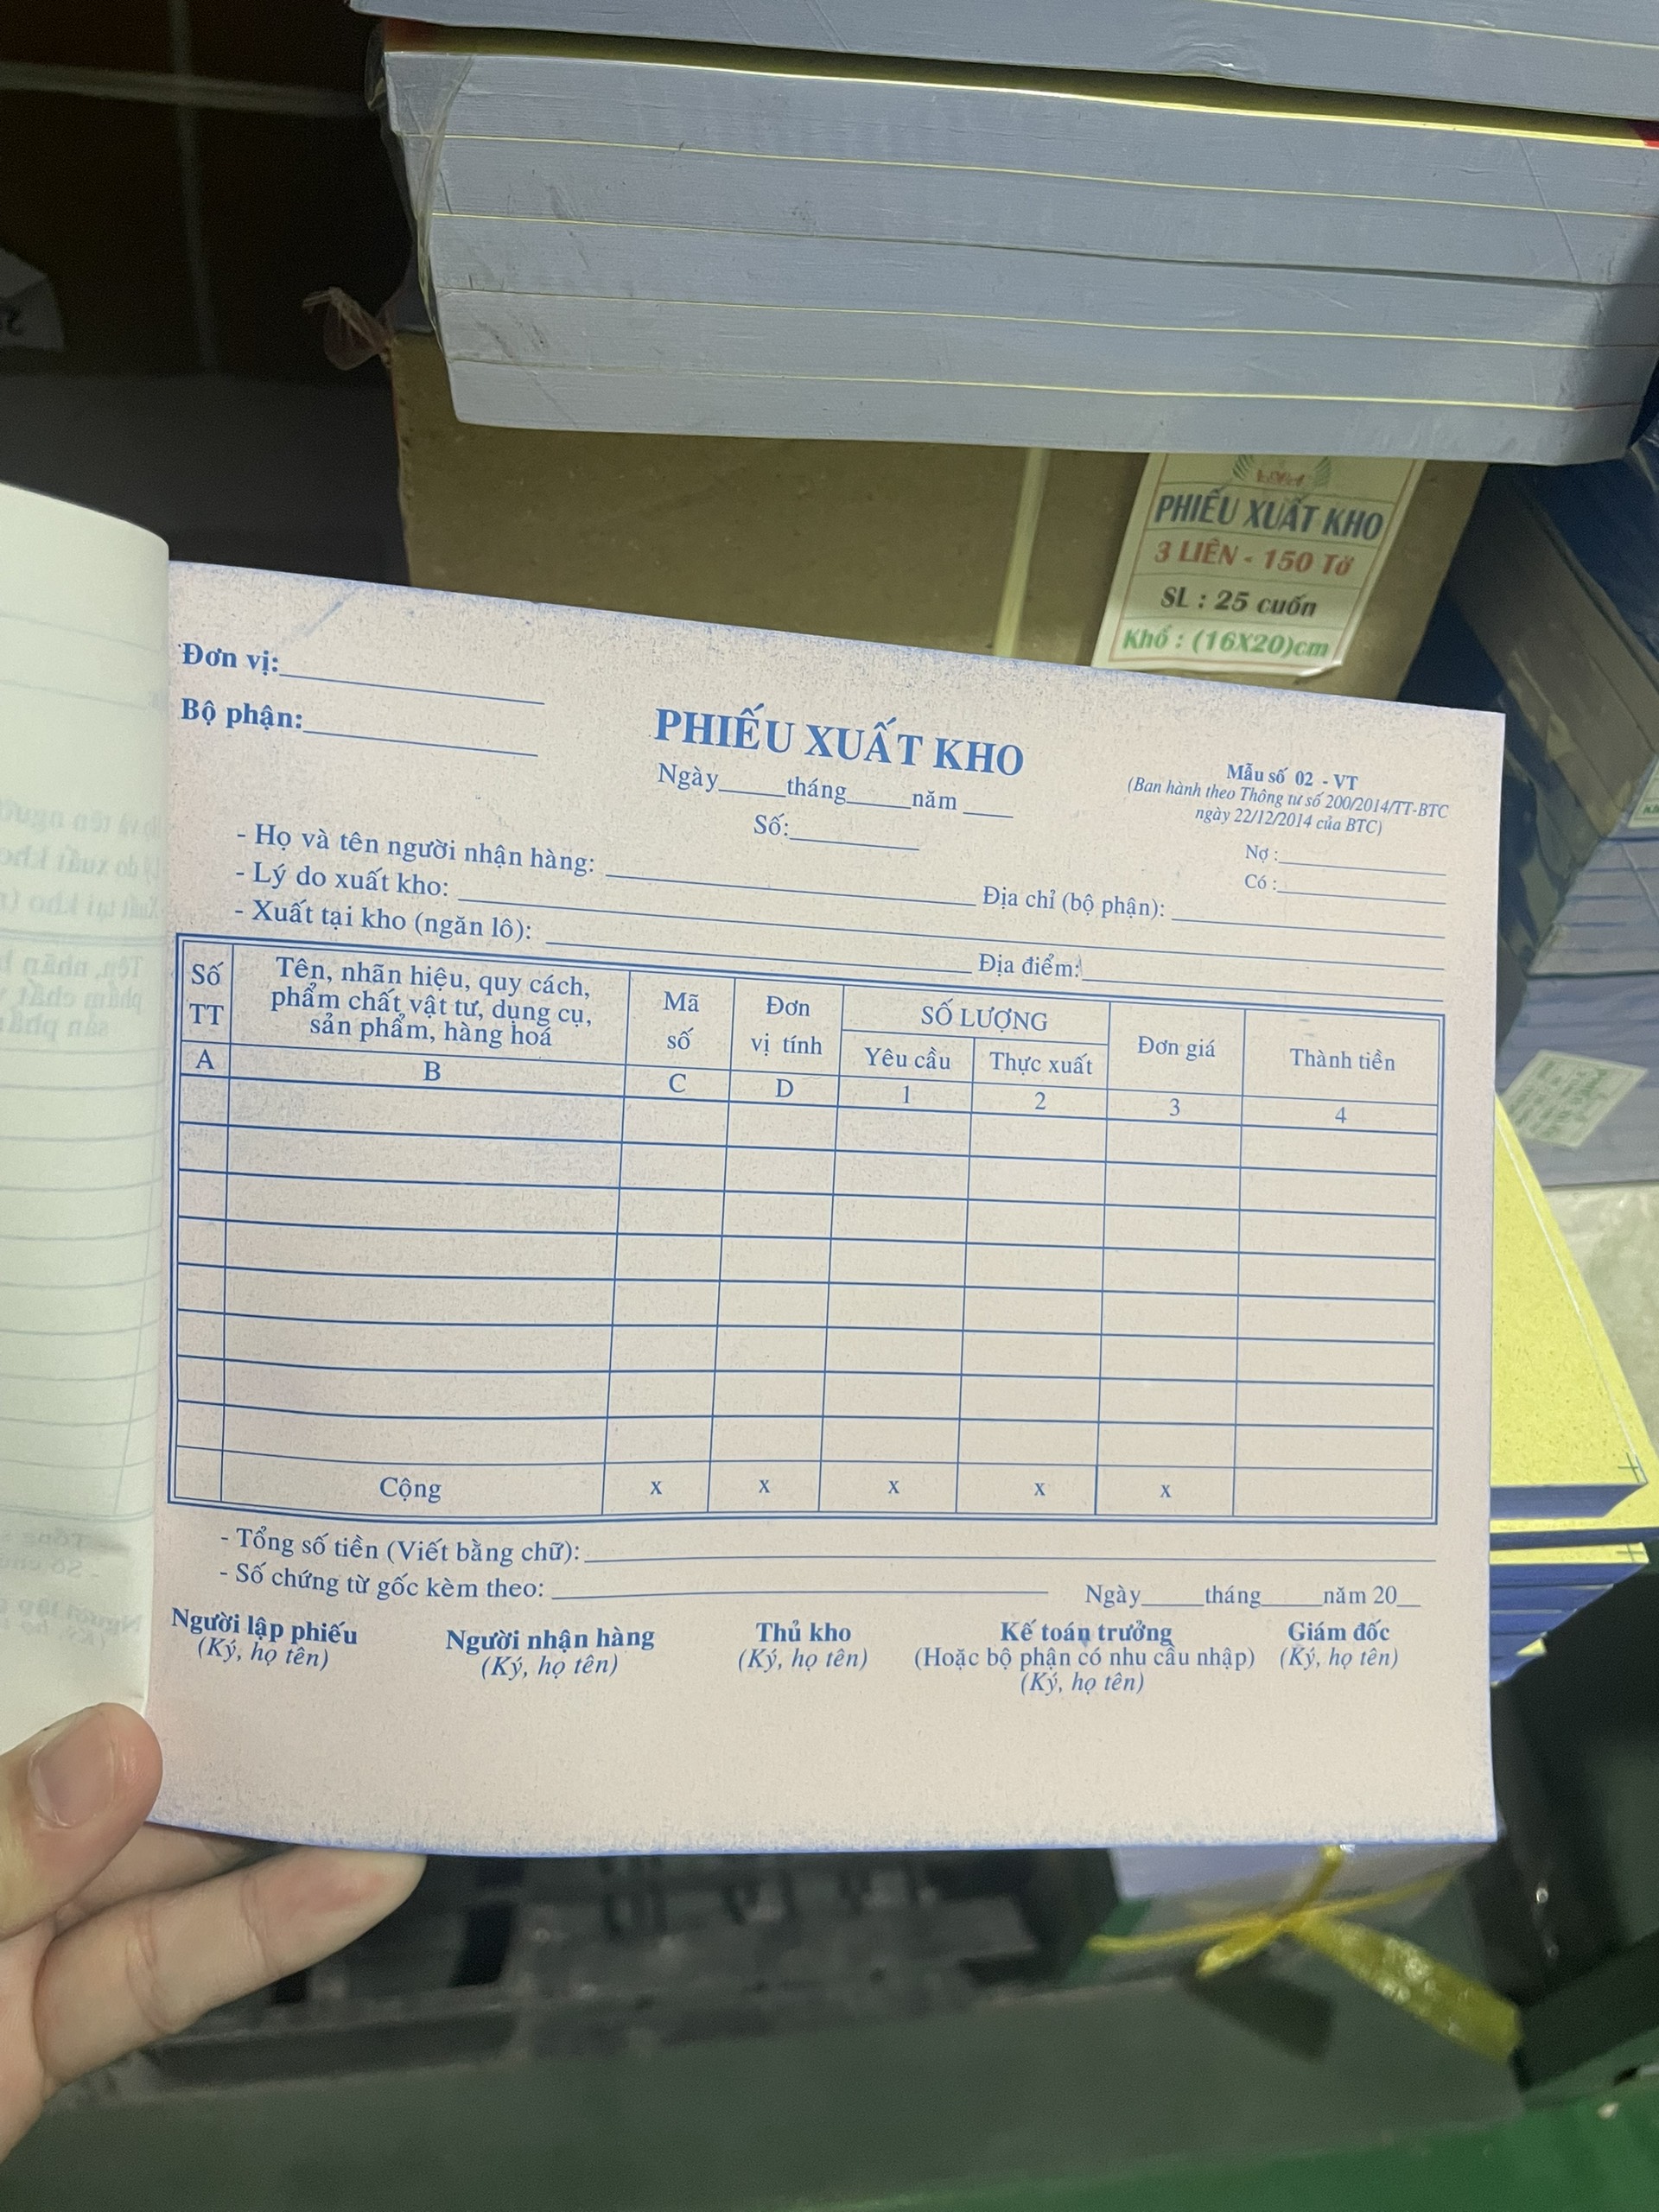 PHIẾU XUẤT KHO
3 LIÊN - 150 Tờ
SL : 25 cuốn
Khổ : (16X20)cm
Đơn vị:
Bộ phận:
PHIẾU XUẤT KHO
Ngày_____tháng_____năm ____
Số:
Mẫu số 02 - VT
(Ban hành theo Thông tư số 200/2014/TT-BTC
ngày 22/12/2014 của BTC)
Nợ :
Có :
- Họ và tên người nhận hàng: Địa chỉ (bộ phận):
- Lý do xuất kho:
- Xuất tại kho (ngăn lô): Địa điểm:
Số TT | Tên, nhãn hiệu, quy cách, phẩm chất vật tư, dụng cụ, sản phẩm, hàng hoá | Mã số | Đơn vị tính | SỐ LƯỢNG | Đơn giá | Thành tiền
Yêu cầu | Thực xuất
A | B | C | D | 1 | 2 | 3 | 4
Cộng | x | x | x | x | x
- Tổng số tiền (Viết bằng chữ):
- Số chứng từ gốc kèm theo:
Ngày_____tháng_____năm 20__
Người lập phiếu Người nhận hàng Thủ kho Kế toán trưởng Giám đốc
(Ký, họ tên) (Ký, họ tên) (Ký, họ tên) (Hoặc bộ phận có nhu cầu nhập) (Ký, họ tên)
(Ký, họ tên)